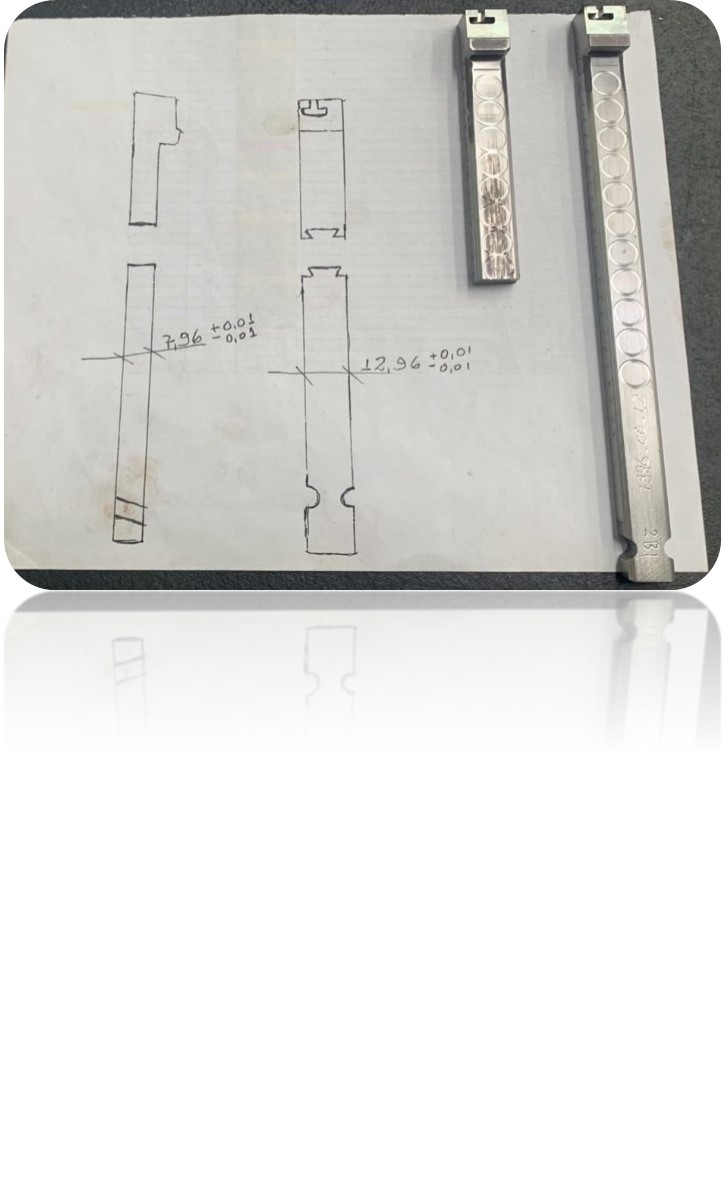 7,96 +0,01
-0,01
12,96 +0,01
-0,01